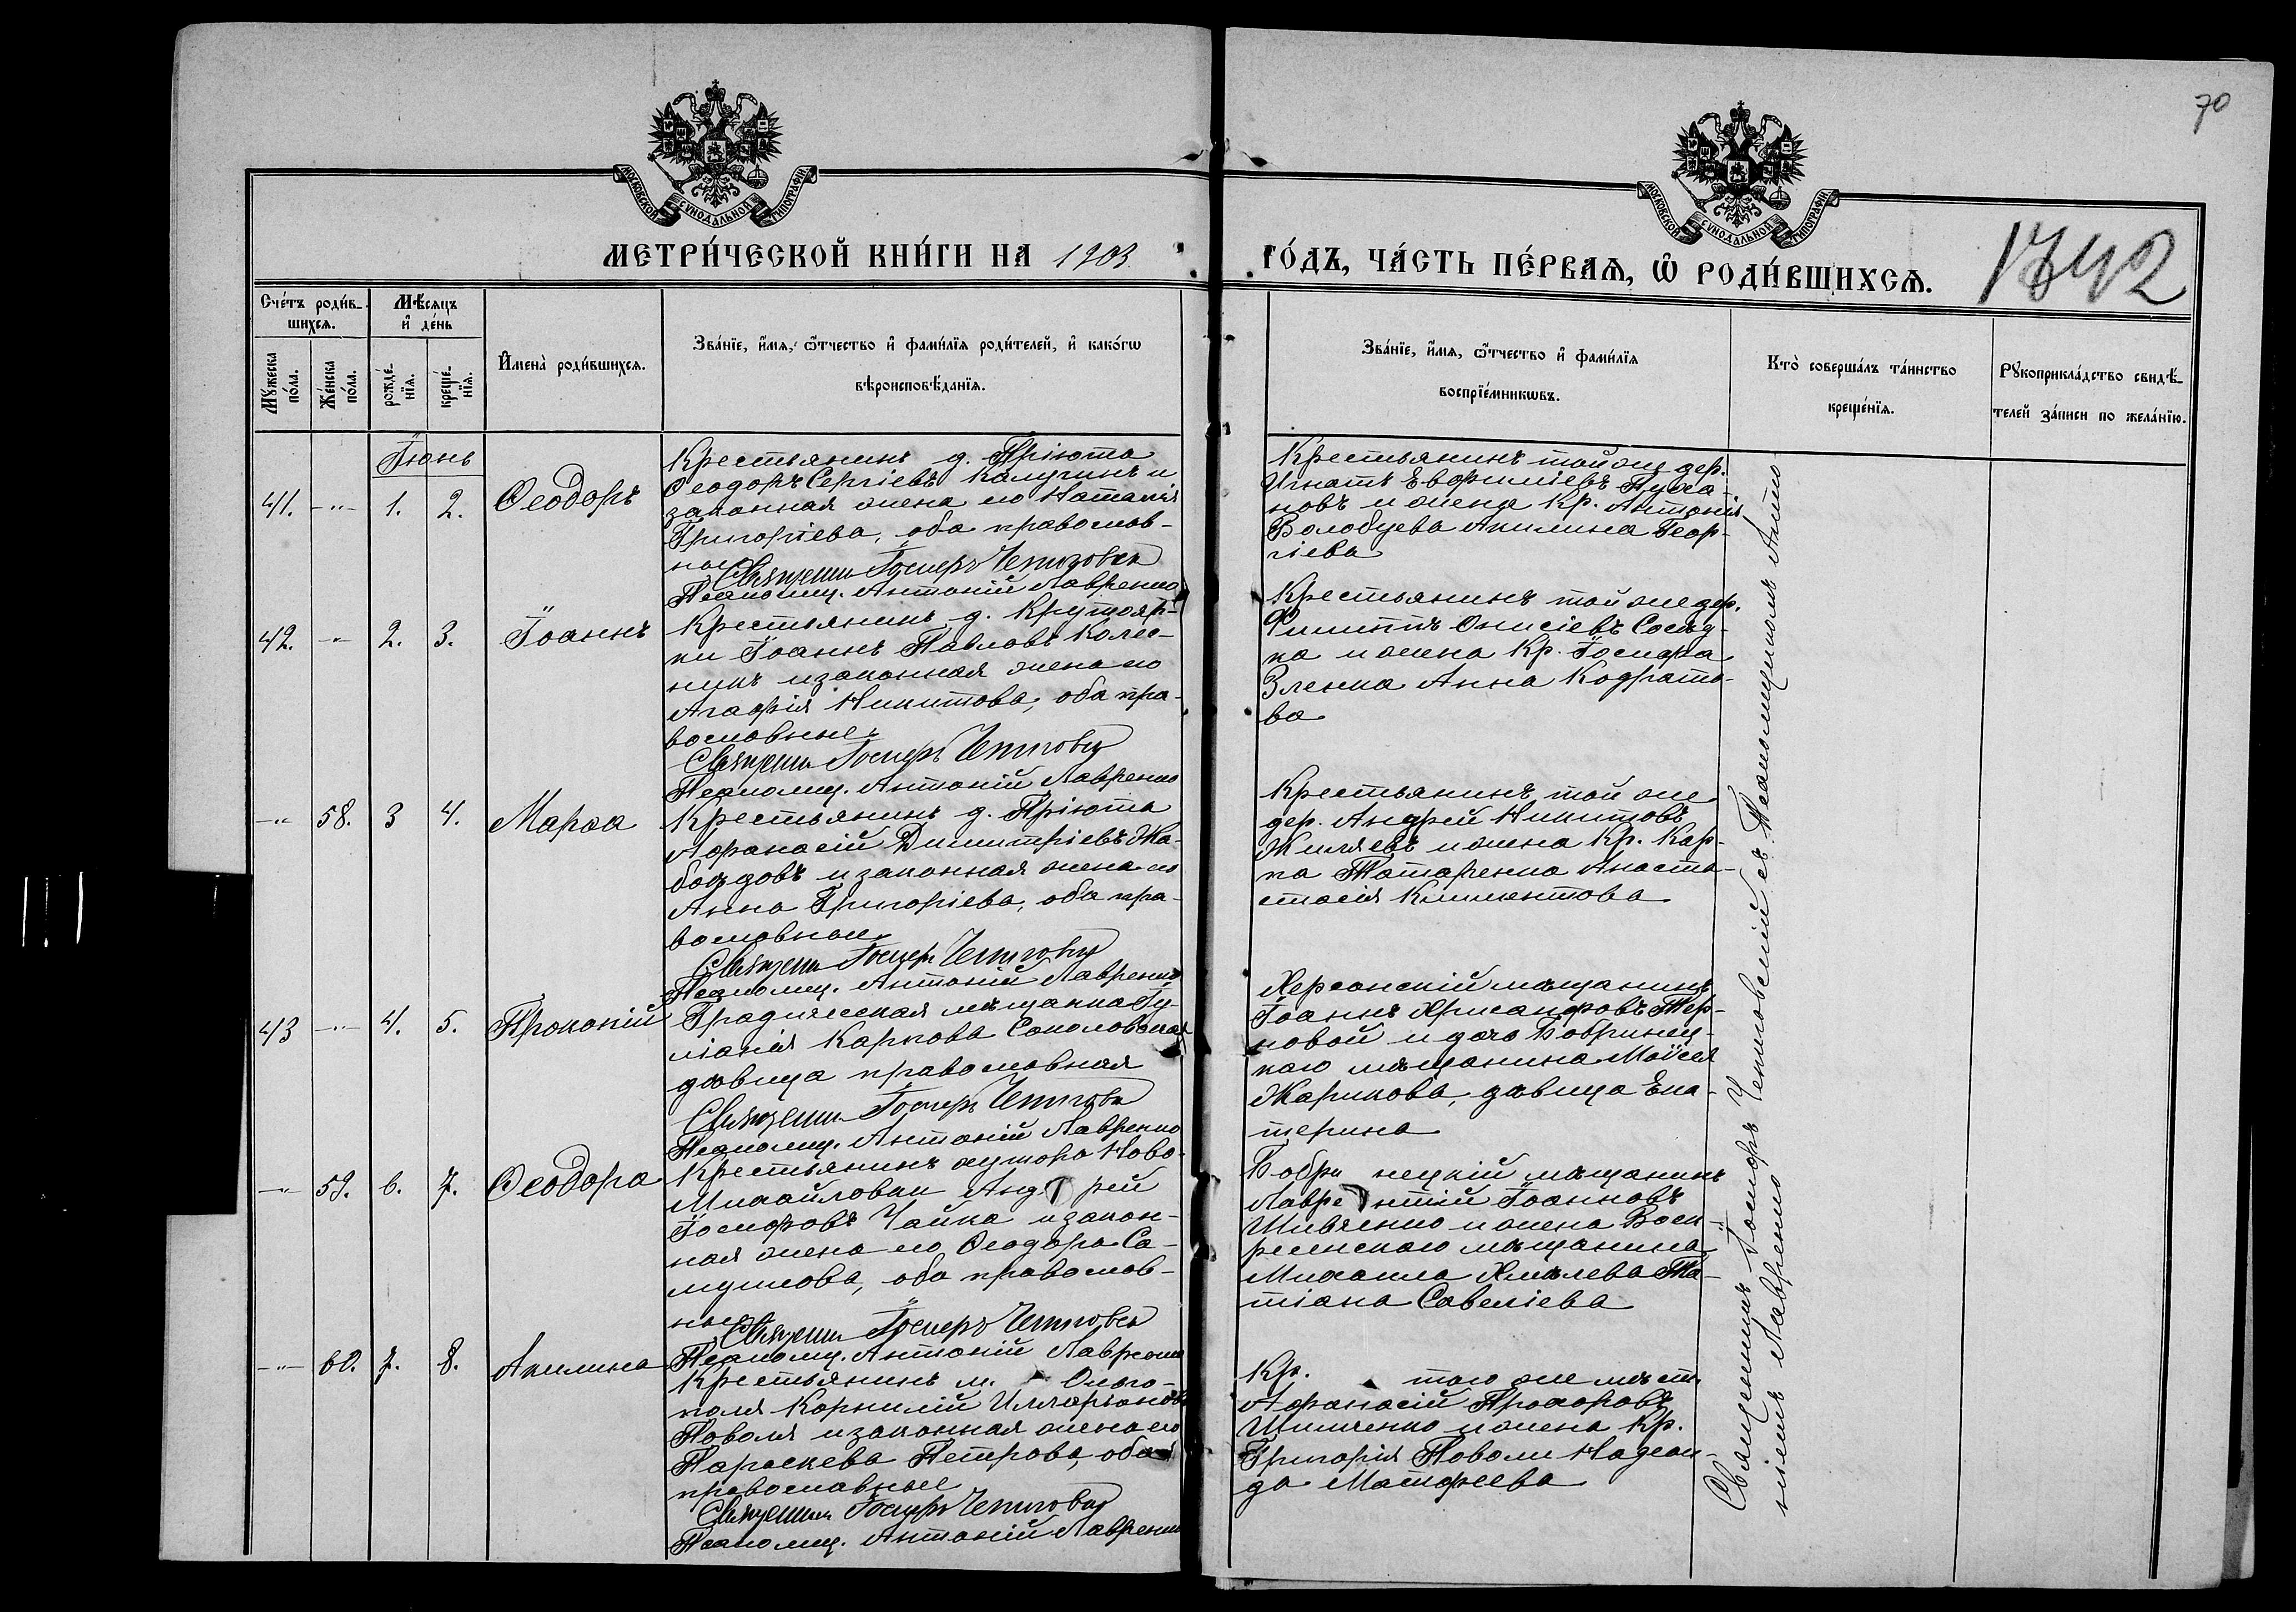 70
МОСКОВСКОЙ СѴНОДАЛЬНОЙ ТИПОГРАФІИ
МОСКОВСКОЙ СѴНОДАЛЬНОЙ ТИПОГРАФІИ
МЕТРИ́ЧЕСКОЙ КНИ́ГИ НА 1903
ГО́ДЪ, ЧА́СТЬ ПЕ́РВАѦ, Ѡ҆ РОДИ́ВШИХСѦ.
1742
Сче́тъ роди́вшихсѧ.
Мѣ́сяцъ и҆ де́нь
Мꙋ́жеска по́ла.
Же́нска по́ла.
рожде́нїѧ.
креще́нїѧ.
И҆мена̀ роди́вшихсѧ.
Зва́нїе, и҆́мѧ, ѻ҆́тчество и҆ фами́лїѧ роди́телей, и҆ како́гѡ
вѣроисповѣ́данїѧ.
Зва́нїе, и҆́мѧ, ѻ҆́тчество и҆ фами́лїѧ
воспрїе́мникѡвъ.
Кто̀ соверша́лъ та́инство
креще́нїѧ.
Рꙋкоприкла́дство свидѣ́-
телей за́писи по жела́нїю.
Іюнь
41. -"- 1. 2. Ѳеодоръ
Крестьянинъ д. Пріюта
Ѳеодоръ Сергіевъ Калугинъ и
законная жена его Наталія
Григоріева, оба православ-
ные
Священн. Іосифъ Чепиговск
Псаломщ. Антоній Лавренко
Крестьянинъ той же дер.
Игнатъ Евфиміевъ
новъ и жена Кр. Антонія
Волобуева Акилина Геор-
гіева
42. -"- 2. 3. Іоаннъ
Крестьянинъ д. Крутояр-
ки Іоаннъ Павловъ Колес-
никъ и законная жена его
Агафія Никитова, оба пра-
вославные
Священн. Іосифъ Чепигов
Псаломщ. Антоній Лавренко
Крестьянинъ той же дер.
Филиппъ Онисіевъ Сосѣд-
ка и жена Кр. Іосифа
Зленка Анна Кодрато-
ва
-"- 58. 3 4. Марѳа
Крестьянинъ д. Пріюта
Афанасій Димитріевъ Жа-
боѣдовъ и законная жена его
Анна Григоріева, оба пра-
вославные
Священн. Іосифъ Чепигов
Псаломщ. Антоній Лавренко
Крестьянинъ той же
дер. Андрей Никитовъ
Жиляевъ и жена Кр. Кар-
па Татаренка Анаста-
стасія Климентова
43 -"- 4. 5. Прокопій
Градижская мѣщанка Іу-
ліанія Карпова Соколовская
дѣвица православная
Священн. Іосифъ Чепигов
Псаломщ. Антоній Лавренко
Херсонскій мѣщанинъ
Іоаннъ Хрисанфовъ Тер-
новой и дочь Бобринец-
каго мѣщанина Моѵсея
Жарикова, дѣвица Ека-
терина
-"- 59. 6. 7. Ѳеодора
Крестьянинъ хутора Ново-
Михайловки Анд рей
Іосифовъ Чайка и закон-
ная жена его Ѳеодора Са-
муилова, оба православ-
ные
Священн. Іосифъ Чепиговск
Псаломщ. Антоній Лавренко
Бобри нецкій мѣщанинъ
Лавре нтій Іоанновъ
Шивченко и жена Воск-
ресенскаго мѣщанина
Михаила Хмѣлева Та-
тіана Савеліева
-"- 60. 7. 8. Акилина
Крестьянинъ м. Ольго-
поля Корнилій Илларіоновъ
Поволя и законная жена его
Параскева Петрова, оба
православные
Священн. Іосифъ Чепигов
Псаломщ. Антоній Лавренко
Кр. того же мѣст.
Афанасій Прохоровъ
Шимченко и жена Кр.
Григорія Поволи Надеж-
да Матфеева
Священникъ Іосифъ Чепиговскій съ Псаломщикомъ Анто-
ніемъ Лавренко